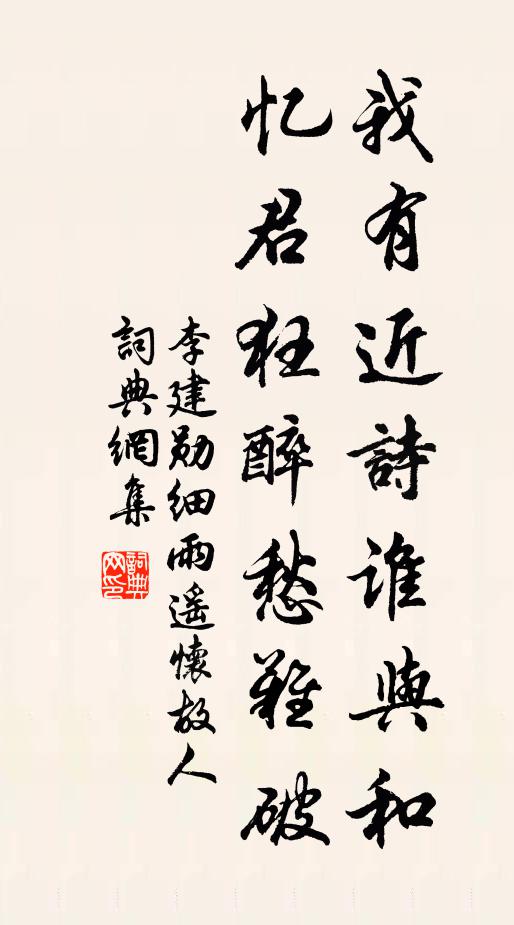 我有近詩誰與和
忆君狂醉愁難破
李建勋细雨遥懷故人
詞典網集
詞典网印